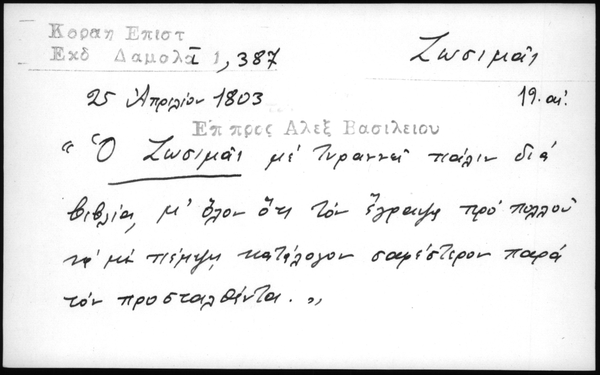 Κοραη Επιστ
Εκδ Δαμαλα I 1, 387
Ζωσιμᾶς
25 Ἀπριλίου 1803
19. αἰ.
Επ προς Αλεξ Βασιλειου
"Ὁ Ζωσιμᾶς μὲ τυραννεῖ πάλιν διὰ
βιβλία, μ' ὅλον ὅτι τὸν ἔγραψα πρὸ πολλοῦ
νὰ μὲ πέμψῃ κατάλογον σαφέστερον παρὰ
τὸν προσταλθέντα. "